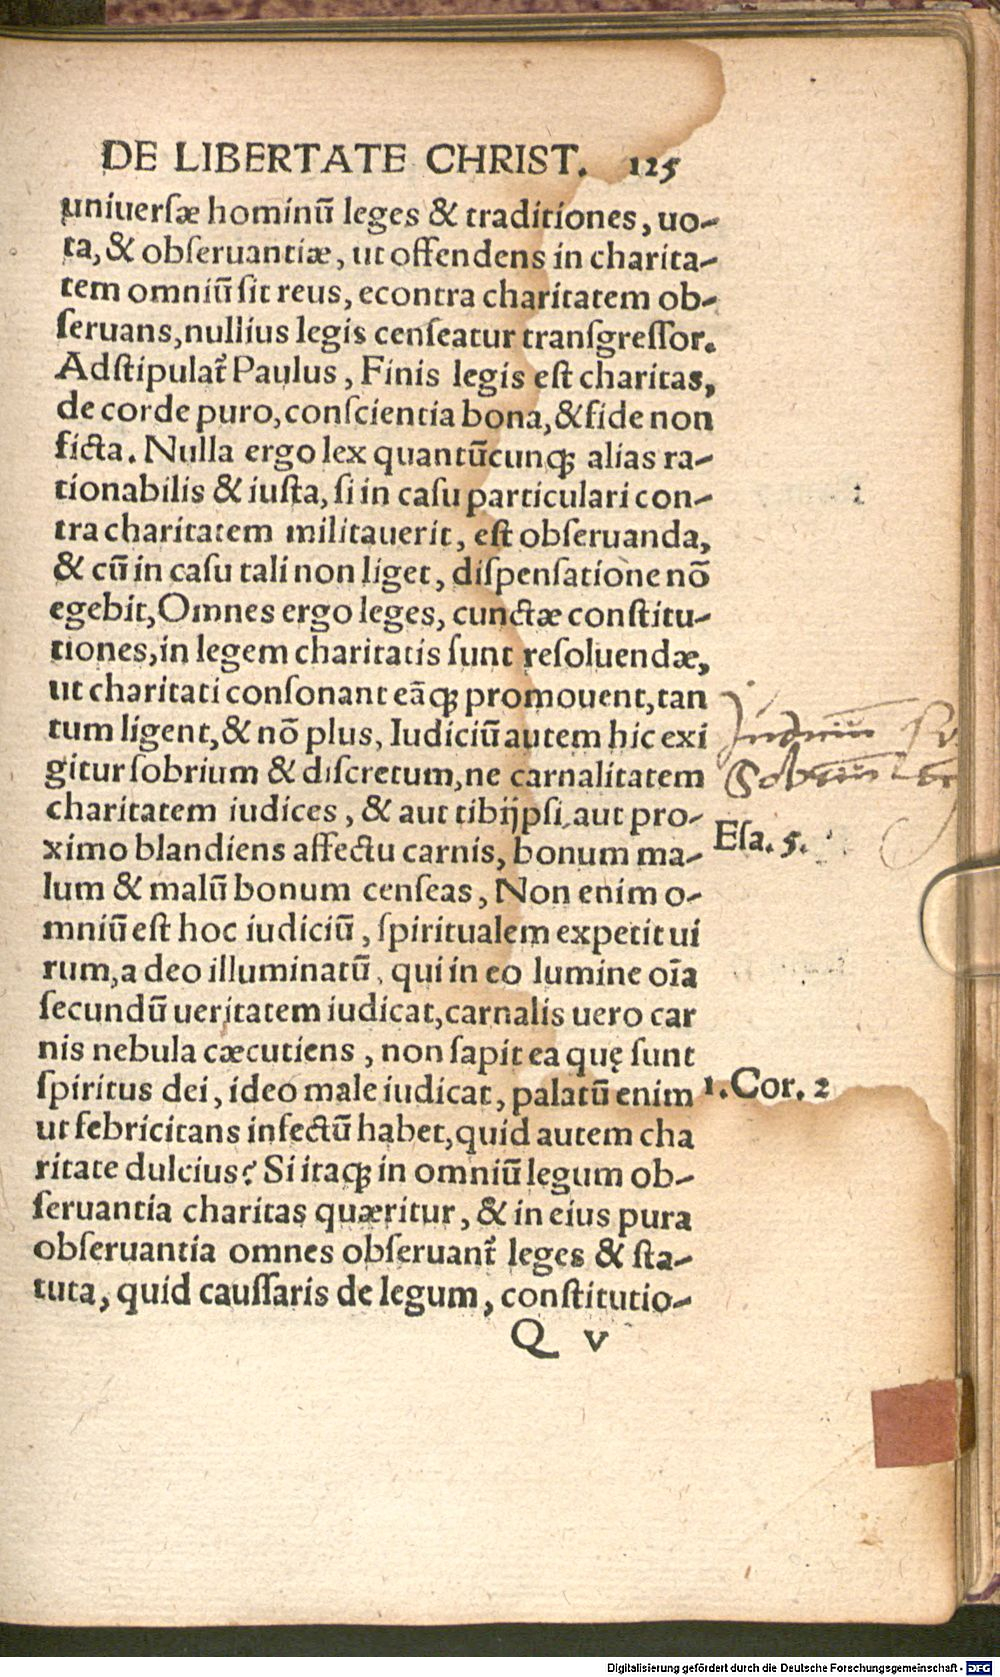 DE LIBERTATE CHRIST. 125
uniuerſæ hominū leges & traditiones, uo-
ta, & obſeruantiæ, ut offendens in charita-
tem omniū ſit reus, econtra charitatem ob-
ſeruans, nullius legis cenſeatur tranſgreſſor.
Adſtipulat᷑ Paulus, Finis legis eſt charitas,
de corde puro, conſcientia bona, & fide non
ficta. Nulla ergo lex quantūcunqꝫ alias ra-
tionabilis & iuſta, ſi in caſu particulari con-
tra charitatem militauerit, eſt obſeruanda,
& cū in caſu tali non liget, diſpenſatione nō
egebit, Omnes ergo leges, cunctæ conſtitu-
tiones, in legem charitatis ſunt reſoluendæ,
ut charitati conſonant eāqꝫ promouent, tan
tum ligent, & nō plus, Iudiciū autem hic exi
gitur ſobrium & diſcretum, ne carnalitatem
charitatem iudices, & aut tibijpſi aut pro-
ximo blandiens affectu carnis, bonum ma-
lum & malū bonum cenſeas, Non enim o-
mniū eſt hoc iudiciū, ſpiritualem expetit ui
rum, a deo illuminatū, qui in eo lumine oīa
ſecundū ueritatem iudicat, carnalis uero car
nis nebula cæcutiens, non ſapit ea quę ſunt
ſpiritus dei, ideo male iudicat, palatū enim
ut febricitans infectū habet, quid autem cha
ritate dulcius? Si itaqꝫ in omniū legum ob-
ſeruantia charitas quæritur, & in eius pura
obſeruantia omnes obſeruant᷑ leges & ſta-
tuta, quid cauſſaris de legum, conſtitutio-
Q v
Eſa. 5.
1. Cor. 2
Digitalisierung gefördert durch die Deutsche Forschungsgemeinschaft - DFG